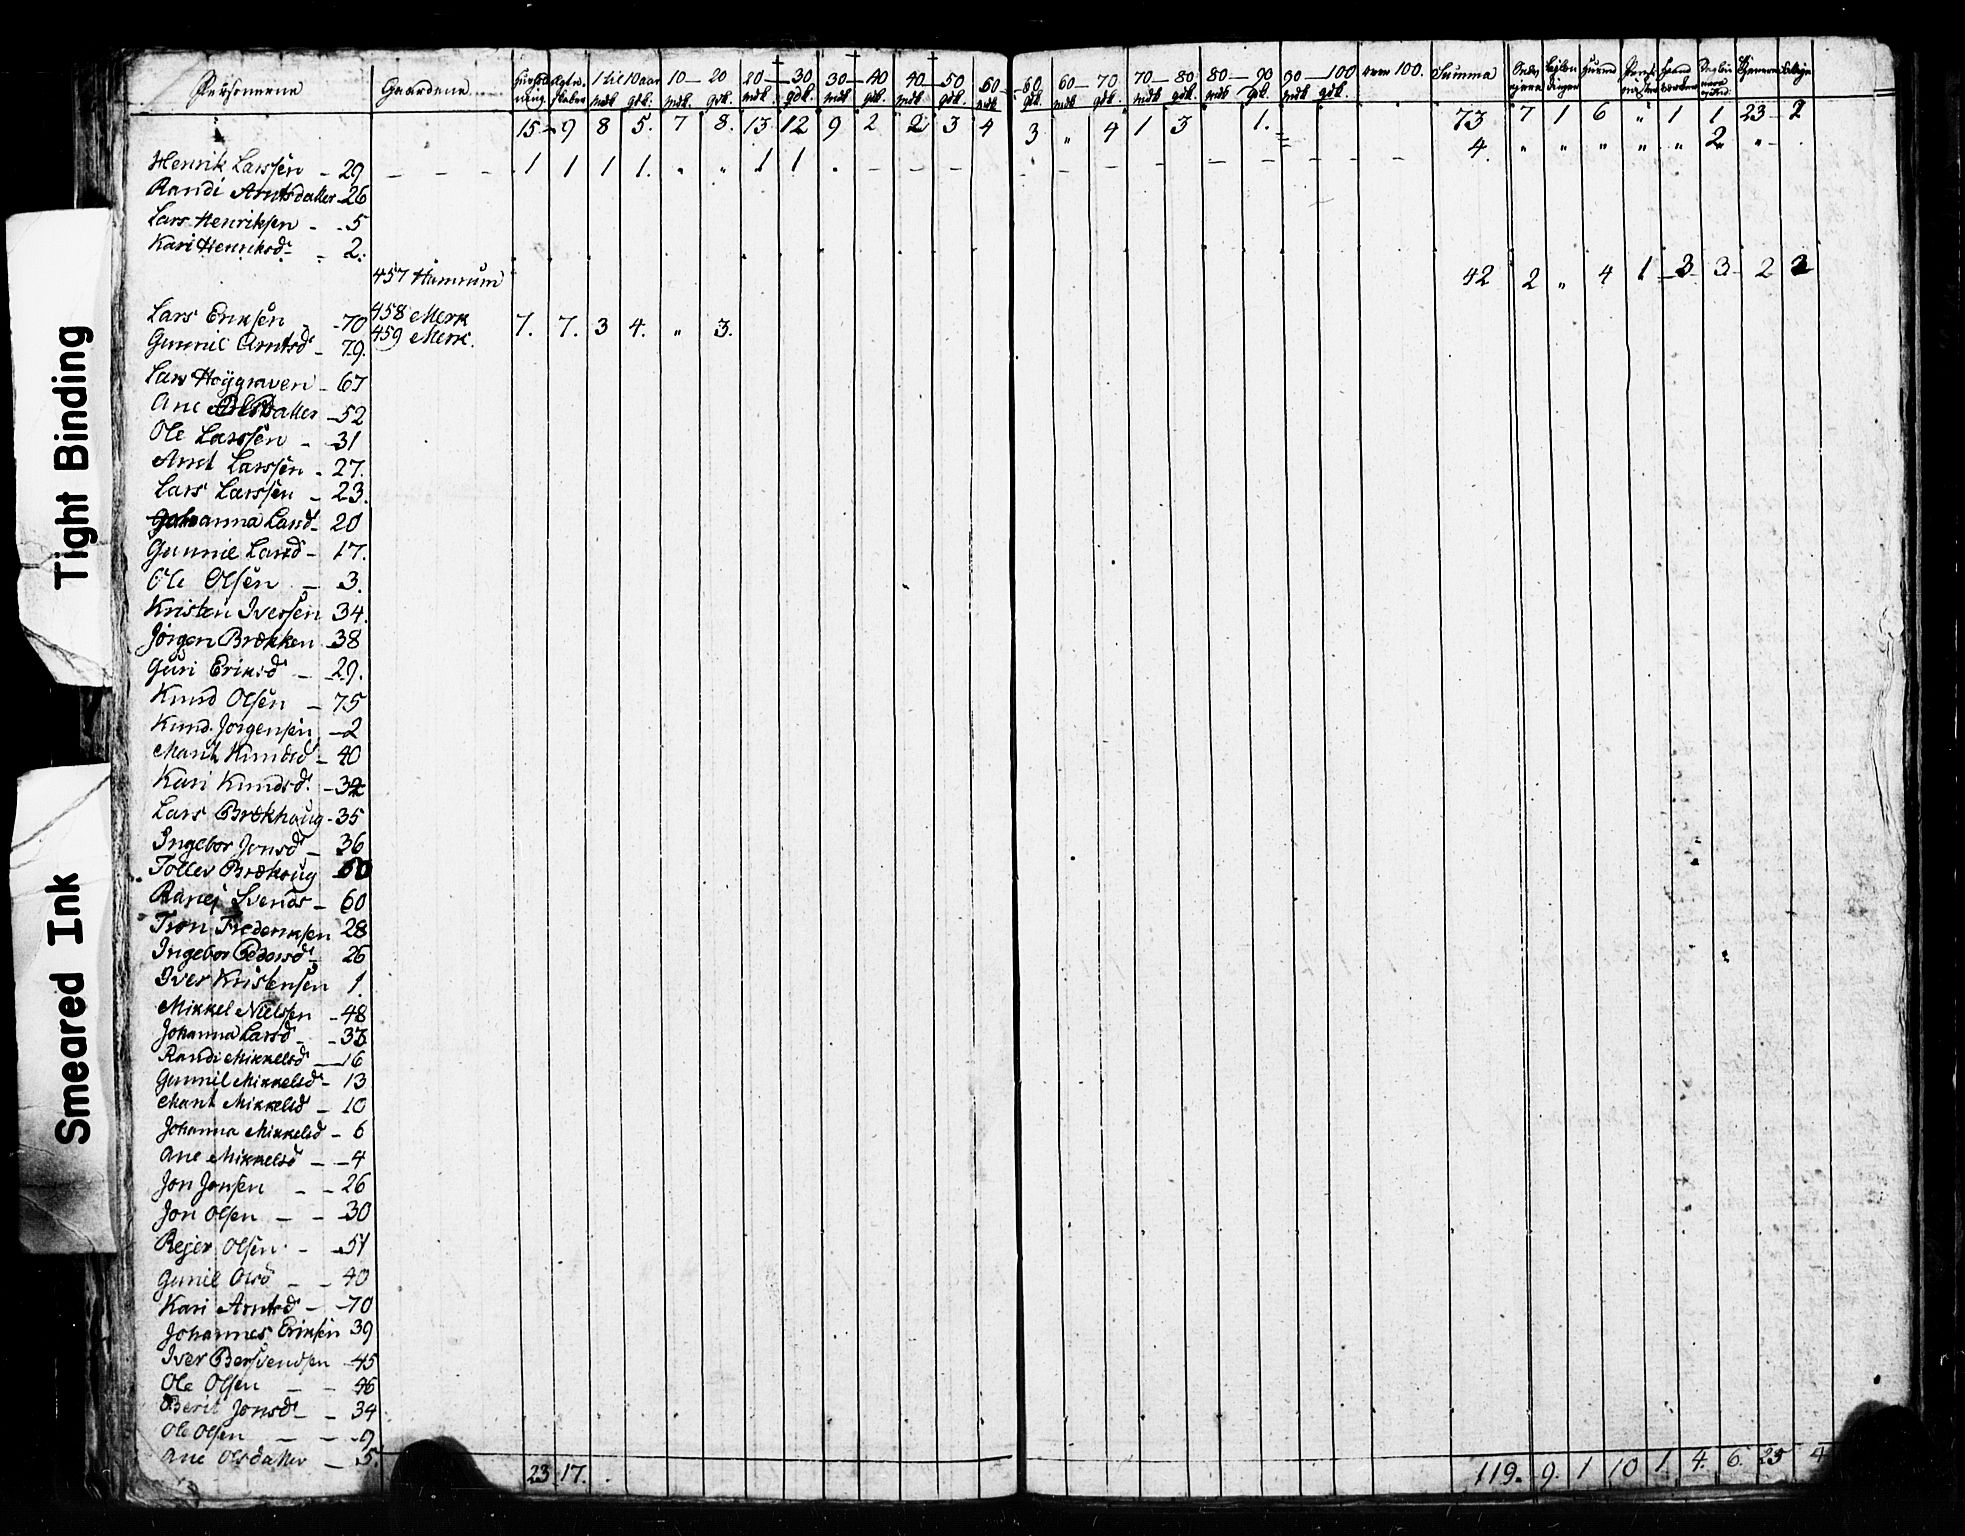 Personerne Gaardene 1 til 10 aar 10 — 20 20 — 30 30 — 40 40 — 50 50 — 60 60 — 70 70 — 80 80 — 90 90 — 100 over 100. Summa
mdk. gdk. mdk. gdk. mdk. gdk. mdk. gdk. mdk. gdk. mdk. gdk. mdk. gdk. mdk. gdk. mdk. gdk. mdk. gdk.
15 9 8 5. 7 8. 13 12 9 2 2 3 4 3 " 4 1 3 1. 73 7 1 6 " 1 1 23 2
4. " " " " " 2 "
Henrik Larssen - 29 - - - 1 1 1 1. " " 1 1 - - - -
Randi Arntsdatter - 26
Lars Henriksen - - 5
Kari Henriksd - - 2.
457 Hamrum 42 2 " 4 1 3 3 2 2
Lars Eriksen - 70 458 Merk 7. 7. 3 4. " 3.
Gunnil Arntsd - 79. 459 Merk.
Lars Høygraven - 67
Ane datter - 52
Ole Larssen - 31
Arnt Larssen - 27.
Lars Larssen - 23.
Johanna Larsd - 20
Gunnil Larsd - 17.
Ole Olsen - 3.
Kristen Iversen 34.
Jørgen Brækken 38
Guri Eriksd - 29.
Knud Olsen - 75
Knud Jørgensen - 2
Marit Knudsd - 40
Kari Knudsd. - 32
Lars Brækhaug - 35
Ingebor Jonsd - 36
Toller Brækhaug 60
Ranej Svends - 60
Tron Frederiksen 28
Ingebor Pedersd - 26
Iver Kristensen 1.
Mikkel Nielssen - 48
Johanna Larsd - 33
Randi Mikkelsd - 16
Gunnil Mikkelsd - 13
Marit Mikkelsd - 10
Johanna Mikkelsd - 6
Ane Mikkelsd - - 4
Jon Jonsen - - 26
Jon Olsen - - 30
Rejer Olsen - - 51
Gunil Olsd - - 40
Kari Arntsd - - 70
Johannes Eriksen 39
Iver Bersvendsen - 45
Ole Olsen - - 46
Berit Jonsd - - 34
Ole Olsen - - - 9
Ane Olsdatter - 5.
23 17. 119. 9. 1 10 1. 4. 6. 25 4
Tight Binding
Smeared Ink